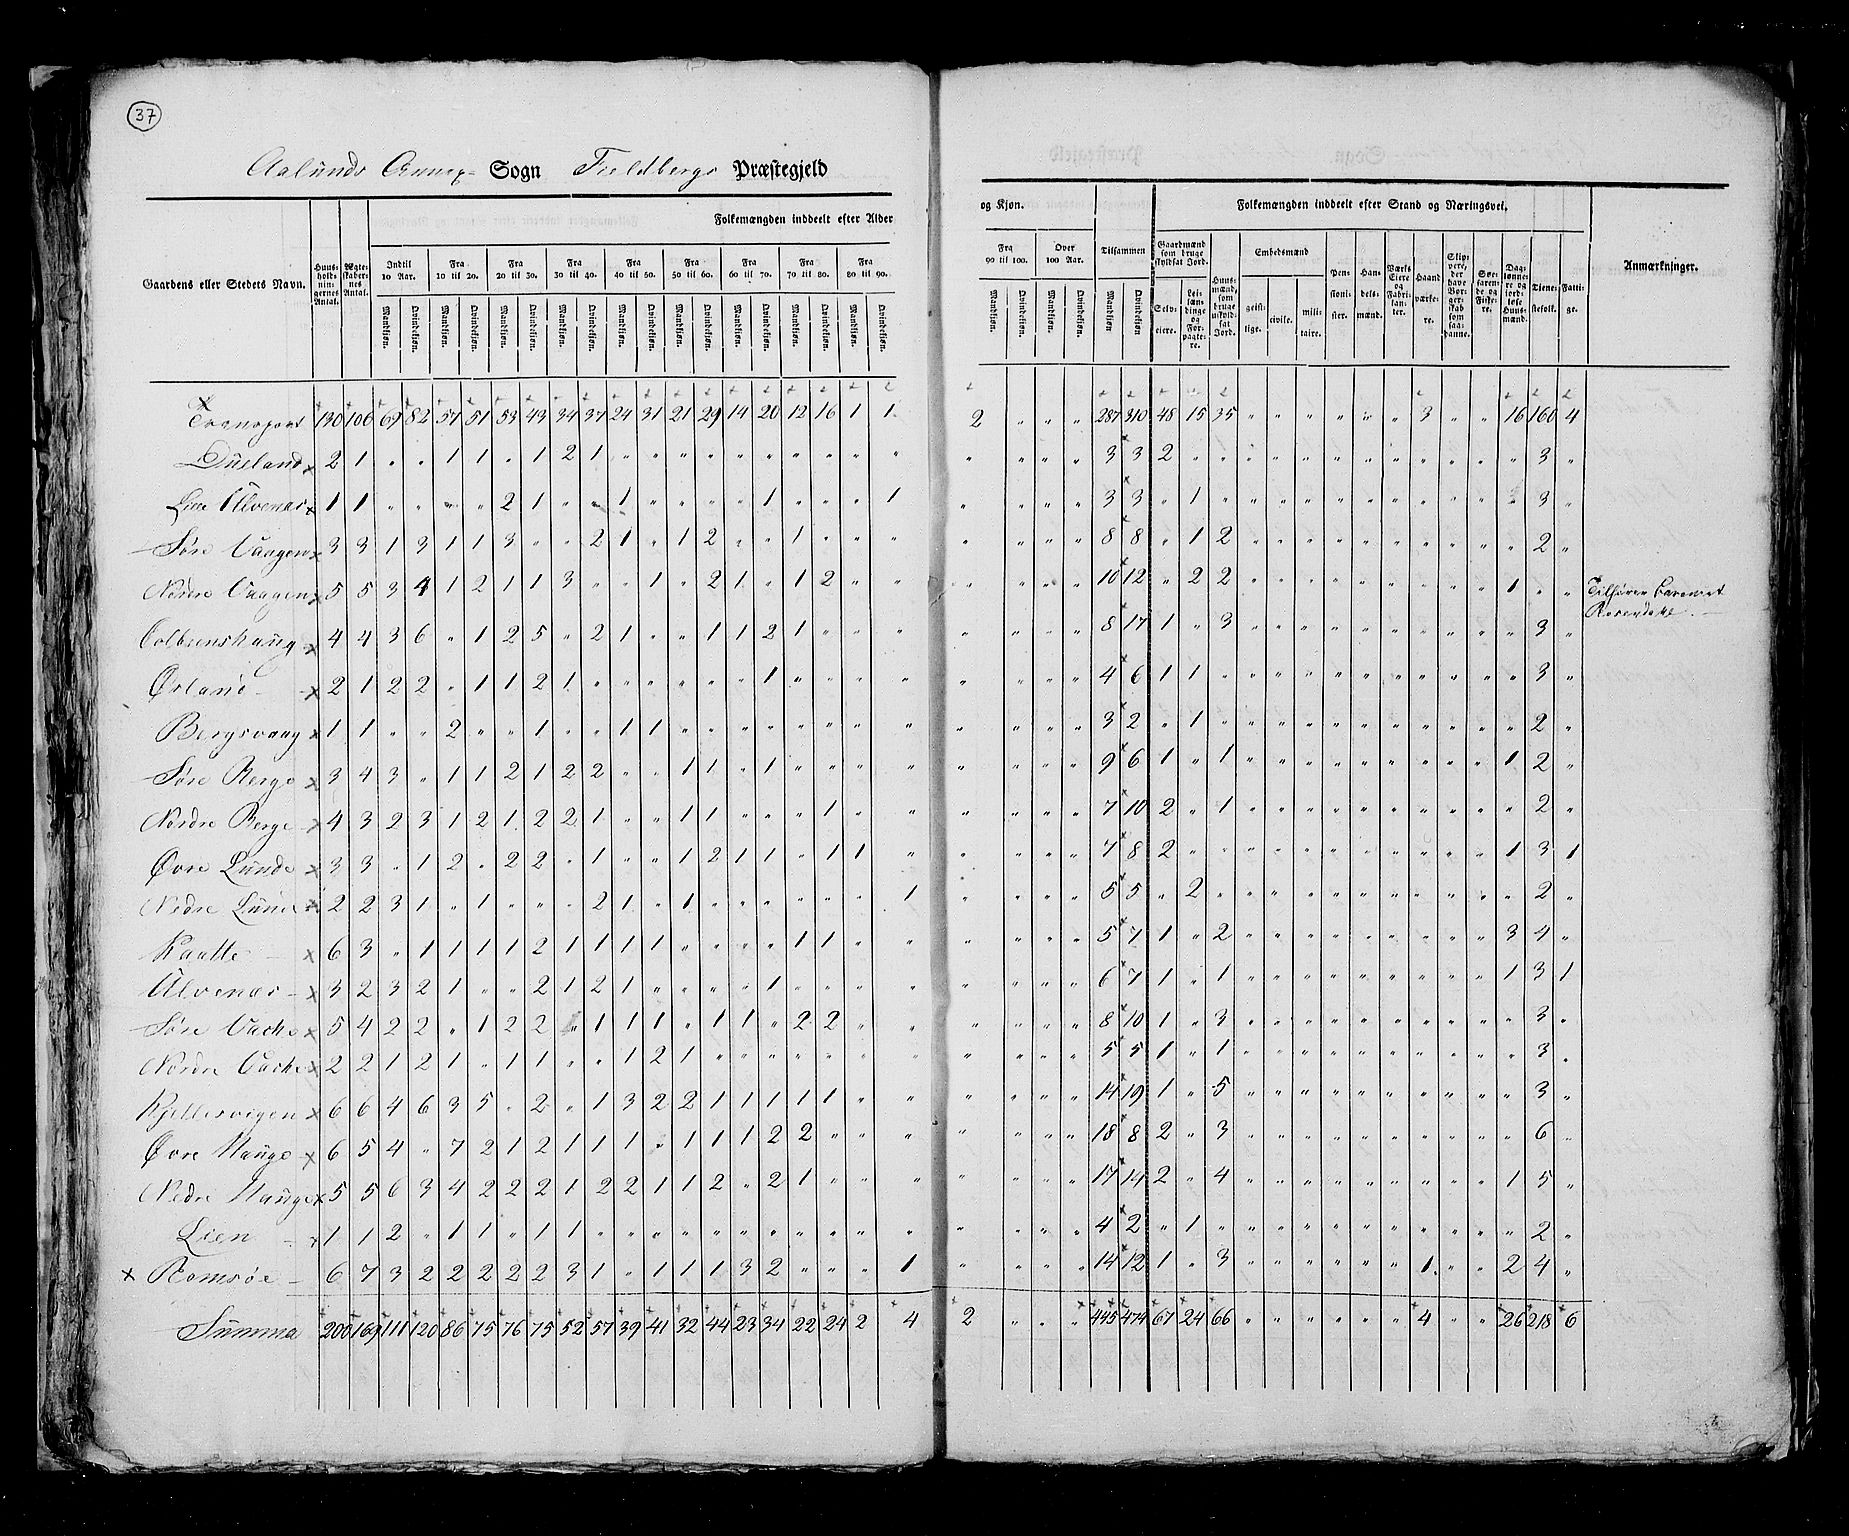 37
Aalunds Annex- Sogn Fieldbergs Præstegjeld
Folkemængden inddeelt efter Alder og Kjøn. Folkemængden inddeelt efter Stand og Næringsvei.
Gaardens eller Stedets Navn. Huusholdningernes Antal. Ægteskabernes Antal. Indtil 10 Aar. Fra 10 til 20. Fra 20 til 30. Fra 30 til 40. Fra 40 til 50. Fra 50 til 60. Fra 60 til 70. Fra 70 til 80. Fra 80 til 90. Fra 90 til 100. Over 100 Aar. Tilsammen Gaardmænd som bruge skyldsat Jord. Huusmænd, som bruge uskyldsat Jord. Embedsmænd Pensionister. Handelsmænd. Værks Eiere og Fabrikanter. Haandværkere. Skippere, der have Borgerskab som saadanne. Søefarende og Fiskere. Daglønnere og jordløse Huusmænd. Tienestefolk. Fattige. Anmærkninger.
Mandkiøn. Qvindekiøn. Mandkiøn. Qvindekiøn. Mandkiøn. Qvindekiøn. Mandkiøn. Qvindekiøn. Mandkiøn. Qvindekiøn. Mandkiøn. Qvindekiøn. Mandkiøn. Qvindekiøn. Mandkiøn. Qvindekiøn. Mandkiøn. Qvindekiøn. Mandkiøn. Qvindekiøn. Mandkiøn. Qvindekiøn. Mandkiøn. Qvindekiøn. Selveiere. Leilændinge og Forpagtere. geistlige. civile. militaire.
Transport 130 106 69 82 57 51 53 43 34 37 24 31 21 29 14 20 12 16 1 1 2 " " " 287 310 48 15 35 " " " " " " 3 " " 16 160 4
Dueland x 2 1 " " 1 1 " 1 2 1 " " " " " " " " " " " " " " 3 3 2 " " " " " " " " " " " " 3 "
Lille Ulvenæs x 1 1 " " " " 2 1 " " 1 " " " " 1 " " " 1 " " " " 3 3 " 1 " " " " " " " " " " " 3 "
Søre Vaagen x 3 3 1 3 1 1 3 " " 2 1 " 1 2 " " 1 " " " " " " " 8 8 " 1 2 " " " " " " " " " " 2 "
Nordre Vaagen x 5 5 3 4 1 2 1 1 3 " " 1 " 2 1 " 1 2 " " " " " " 10 12 " 2 2 " " " " " " " " " 1 " " Tilhører Baroniet
Rosendahl
Colbeenshaug x 4 4 3 6 " 1 2 5 " 2 1 " " 1 1 2 1 " " " " " " " 8 17 1 " 3 " " " " " " " " " " 3 "
Ørland x 2 1 2 2 " 1 1 2 1 " " " " " " 1 " " " " " " " " 4 6 1 1 " " " " " " " " " " " 3 "
Bergsvaag x 1 1 " " 2 " " 1 " " 1 1 " " " " " " " " " " " " 3 2 " 1 " " " " " " " " " " " 2 "
Søre Berge x 3 4 3 " 1 1 2 1 2 2 " " 1 1 " 1 " " " " " " " " 9 6 1 " 1 " " " " " " " " " 1 2 "
Nordre Berge x 4 3 2 3 1 2 1 2 2 1 " " 1 1 " " " 1 " " " " " " 7 10 2 " 1 " " " " " " " " " " 2 "
Øvre Lunde x 3 3 " 1 2 " 2 2 " 1 " " 1 2 1 1 " 1 1 " " " " " 7 8 2 " " " " " " " " " " " 1 3 1
Nedre Lunde x 2 2 3 1 " 1 " " " 2 1 " 1 " " " " " " 1 " " " " 5 5 " 2 " " " " " " " " " " " 2 "
Kaatte x 6 3 " 1 1 1 1 2 1 1 1 1 " " " " 1 1 " " " " " " 5 7 1 " 2 " " " " " " " " " 3 4 "
Ulvenæs x 3 2 3 2 1 " " 2 1 2 1 " " " " 1 " " " " " " " " 6 7 1 " 1 " " " " " " " " " 1 3 1
Søre Vache x 5 4 2 2 " 1 2 2 " 1 1 1 " 1 1 " 2 2 " " " " " " 8 10 1 " 3 " " " " " " " " " " 3 "
Nordre Vache x 2 2 1 2 1 " 1 1 " " 1 2 1 " " " " " " " " " " " 5 5 1 " 1 " " " " " " " " " " 3 "
Kjellesvigen x 6 6 4 6 3 5 " 2 " 1 3 2 2 1 1 1 1 1 " " " " " " 14 19 1 " 5 " " " " " " " " " " 3 "
Øvre Hauge x 6 5 4 " 7 2 1 2 1 1 1 " 1 1 1 2 2 " " " " " " " 18 8 2 " 3 " " " " " " " " " " 6 "
Nedre Hauge x 5 5 6 3 4 2 2 2 1 2 2 1 1 2 " 2 1 " " " " " " " 17 14 2 " 4 " " " " " " " " " 1 5 "
Lien x 1 1 2 " 1 1 " 1 1 " " " " " " " " " " " " " " " 4 2 " 1 " " " " " " " " " " " 2 "
x Romsøe 6 7 3 2 2 2 2 2 3 1 " 1 1 1 3 2 " " " 1 " " " " 14 12 1 " 3 " " " " " " 1 " " 2 4 "
Summa 200 169 111 120 86 75 76 75 52 57 39 41 32 44 23 34 22 24 2 4 2 " " " 445 474 67 24 66 " " " " " " 4 " " 26 218 6